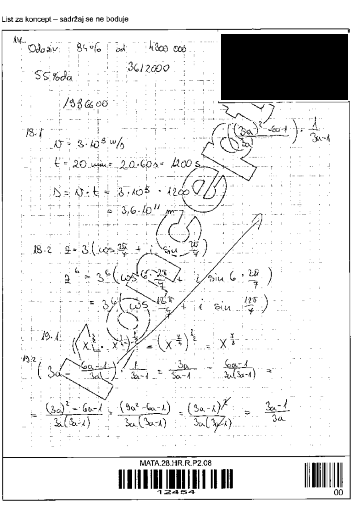 List za koncept – sadržaj se ne boduje
14.
Odaziv 84% od 4300 000
3612000
55% od a
1986600
18.1
v = 3·10⁸ m/s
t = 20 min = 20·60 s = 1200 s
D = v·t = 3·10⁸·1200
= 3,6·10¹¹ m
18.2 z = 3(cos 2π/7 + i sin 2π/7)
z⁶ = 3⁶(cos 6·2π/7 + i sin 6·2π/7)
= 3⁶(cos 12π/7 + i sin 12π/7)
19.1
19.2 (3a - (6a-1)/3a) · 1/(3a-1) = 3a/(3a-1) - (6a-1)/(3a(3a-1)) =
= ((3a)² - 6a-1)/(3a(3a-1)) = (9a²-6a-1)/(3a(3a-1)) = (3a-1)²/(3a(3a-1)) = (3a-1)/3a
Koncept
MATA.28.HR.R.P2.08
12454
00